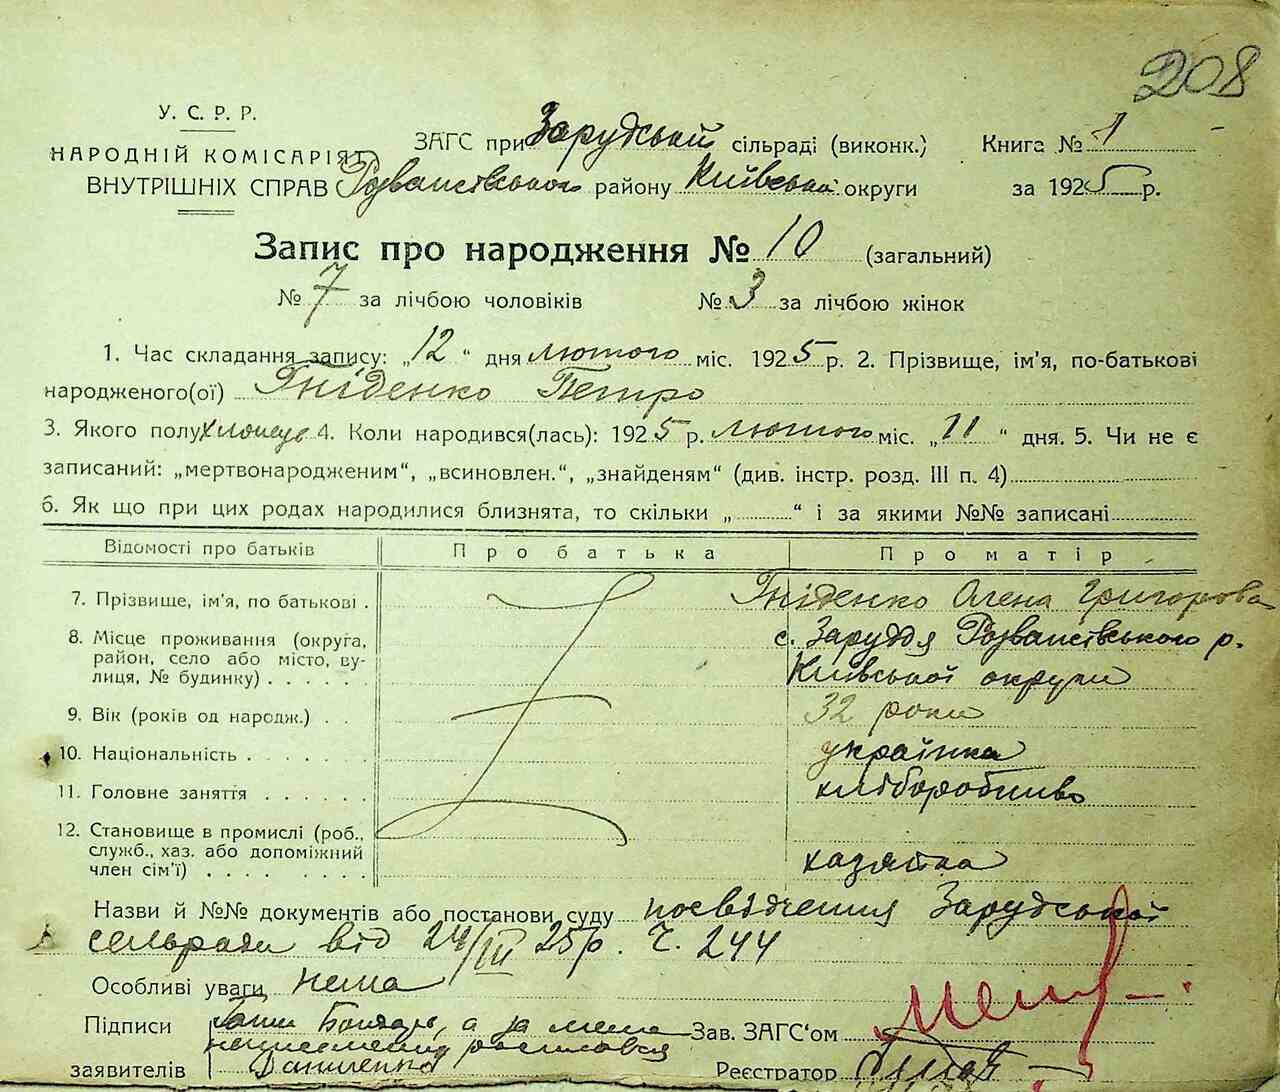 208
У. С. Р. Р.
НАРОДНІЙ КОМІСАРІЯТ
ВНУТРІШНІХ СПРАВ
ЗАГС при Зарудській сільраді (виконк.) Книга № 1
Розваґівського району Київської округи за 1925 р.
Запис про народження № 10 (загальний)
№ 7 за лічбою чоловіків № 3 за лічбою жінок
1. Час складання запису: „12" дня лютого міс. 1925 р. 2. Прізвище, ім'я, по-батькові
народженого(ої) Гніденко Петро
3. Якого полу хлопець 4. Коли народився(лась): 1925 р. лютого міс. „11" дня. 5. Чи не є
записаний: „мертвонародженим", „всиновлен.", „знайденям" (див. інстр. розд. III п. 4)
6. Як що при цих родах народилися близнята, то скільки „ " і за якими №№ записані
Відомості про батьків Про батька Про матір
7. Прізвище, ім'я, по батькові . Гніденко Олена Григорова
8. Місце проживання (округа, с. Заруддя Розваґівського р.
район, село або місто, ву- Київської округи
лиця, № будинку) . . . . .
9. Вік (років од народж.) . . 32 роки
10. Національність . . . . . . українка
11. Головне заняття . . . . . хліборобство
12. Становище в промислі (роб.,
служб., хаз. або допоміжний
член сім'ї) . . . . . . . хазяйка
Назви й №№ документів або постанови суду посвідчення Зарудської
сельради від 24/III 25 р. Ч. 244
Особливі уваги нема
Підписи а за мене Зав. ЗАГС'ом
неписьменну росписався
заявителів Даниленко Реєстратор